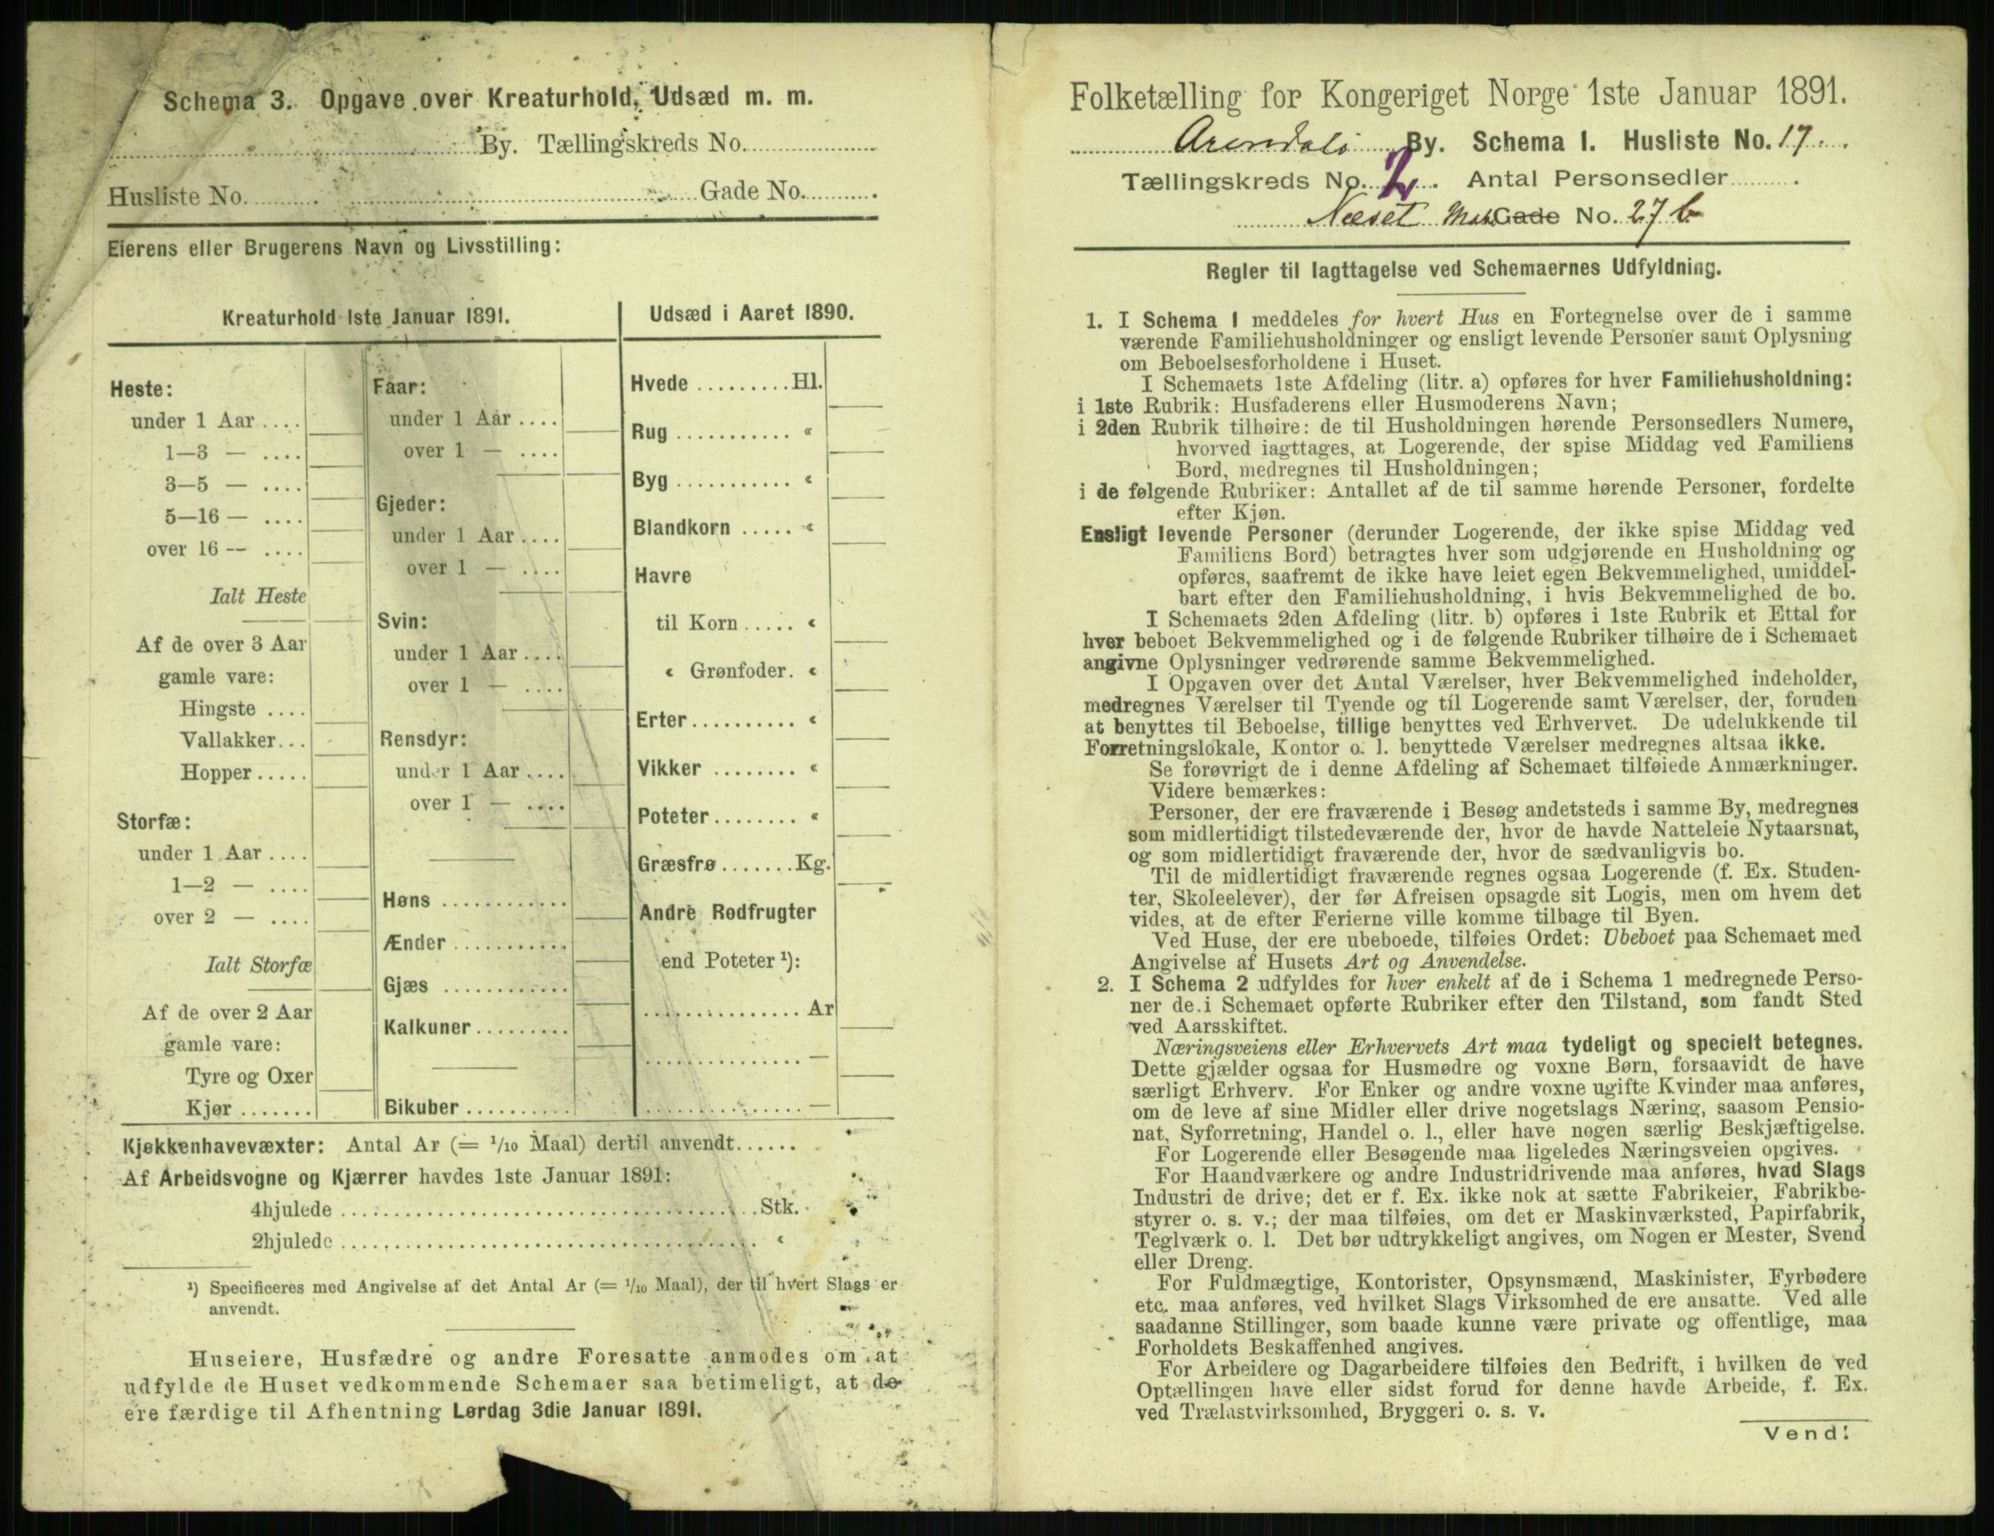 Schema 3. Opgave over Kreaturhold, Udsæd m. m.
By. Tællingskreds No.
Husliste No. Gade No.
Eierens eller Brugerens Navn og Livsstilling:
Kreaturhold 1ste Januar 1891.
Heste:
under 1 Aar ....
1—3 — ....
3—5 — ....
5—16 — ....
over 16 — ....
Ialt Heste
Af de over 3 Aar
gamle vare:
Hingste ....
Vallakker...
Hopper.....
Storfæ:
under 1 Aar ....
1—2 — ....
over 2 — ....
Ialt Storfæ
Af de over 2 Aar
gamle vare:
Tyre og Oxer
Kjør .......
Faar:
under 1 Aar ....
over 1 — ....
Gjeder:
under 1 Aar ....
over 1 — ....
Svin:
under 1 Aar ....
over 1 — ....
Rensdyr:
under 1 Aar ....
over 1 — ....
Høns ............
Ænder ...........
Gjæs ............
Kalkuner.........
Bikuber ..........
Udsæd i Aaret 1890.
Hvede .........Hl.
Rug ........... «
Byg ........... «
Blandkorn ..... «
Havre
til Korn ..... «
« Grønfoder. «
Erter.......... «
Vikker ........ «
Poteter........ «
Græsfrø .......Kg.
Andre Rodfrugter
end Poteter ¹):
............... Ar
............... —
............... —
Kjøkkenhavevæxter: Antal Ar (= 1/10 Maal) dertil anvendt......
Af Arbeidsvogne og Kjærrer havdes 1ste Januar 1891:
4hjulede ........................................Stk.
2hjulede ........................................ «
¹) Specificeres med Angivelse af det Antal Ar (= 1/10 Maal), der til hvert Slags er
anvendt.
Huseiere, Husfædre og andre Foresatte anmodes om at
udfylde de Huset vedkommende Schemaer saa betimeligt, at de
ere færdige til Afhentning Lørdag 3die Januar 1891.
Folketælling for Kongeriget Norge 1ste Januar 1891.
Arendals By. Schema I. Husliste No. 17.
Tællingskreds No. 2. Antal Personsedler
Næset Gade No. 27 b
Regler til Iagttagelse ved Schemaernes Udfyldning.
1. I Schema 1 meddeles for hvert Hus en Fortegnelse over de i samme
værende Familiehusholdninger og ensligt levende Personer samt Oplysning
om Beboelsesforholdene i Huset.
I Schemaets 1ste Afdeling (litr. a) opføres for hver Familiehusholdning:
i 1ste Rubrik: Husfaderens eller Husmoderens Navn;
i 2den Rubrik tilhøire: de til Husholdningen hørende Personsedlers Numere,
hvorved iagttages, at Logerende, der spise Middag ved Familiens
Bord, medregnes til Husholdningen;
i de følgende Rubriker: Antallet af de til samme hørende Personer, fordelte
efter Kjøn.
Ensligt levende Personer (derunder Logerende, der ikke spise Middag ved
Familiens Bord) betragtes hver som udgjørende en Husholdning og
opføres, saafremt de ikke have leiet egen Bekvemmelighed, umiddel-
bart efter den Familiehusholdning, i hvis Bekvemmelighed de bo.
I Schemaets 2den Afdeling (litr. b) opføres i 1ste Rubrik et Ettal for
hver beboet Bekvemmelighed og i de følgende Rubriker tilhøire de i Schemaet
angivne Oplysninger vedrørende samme Bekvemmelighed.
I Opgaven over det Antal Værelser, hver Bekvemmelighed indeholder,
medregnes Værelser til Tyende og til Logerende samt Værelser, der, foruden
at benyttes til Beboelse, tillige benyttes ved Erhvervet. De udelukkende til
Forretningslokale, Kontor o. l. benyttede Værelser medregnes altsaa ikke.
Se forøvrigt de i denne Afdeling af Schemaet tilføiede Anmærkninger.
Videre bemærkes:
Personer, der ere fraværende i Besøg andetsteds i samme By, medregnes
som midlertidigt tilstedeværende der, hvor de havde Natteleie Nytaarsnat,
og som midlertidigt fraværende der, hvor de sædvanligvis bo.
Til de midlertidigt fraværende regnes ogsaa Logerende (f. Ex. Studen-
ter, Skoleelever), der før Afreisen opsagde sit Logis, men om hvem det
vides, at de efter Ferierne ville komme tilbage til Byen.
Ved Huse, der ere ubeboede, tilføies Ordet: Ubeboet paa Schemaet med
Angivelse af Husets Art og Anvendelse.
2. I Schema 2 udfyldes for hver enkelt af de i Schema 1 medregnede Perso-
ner de i Schemaet opførte Rubriker efter den Tilstand, som fandt Sted
ved Aarsskiftet.
Næringsveiens eller Erhvervets Art maa tydeligt og specielt betegnes.
Dette gjælder ogsaa for Husmødre og voxne Børn, forsaavidt de have
særligt Erhverv. For Enker og andre voxne ugifte Kvinder maa anføres,
om de leve af sine Midler eller drive nogetslags Næring, saasom Pensio-
nat, Syforretning, Handel o. l., eller have nogen særlig Beskjæftigelse.
For Logerende eller Besøgende maa ligeledes Næringsveien opgives.
For Haandværkere og andre Industridrivende maa anføres, hvad Slags
Industri de drive; det er f. Ex. ikke nok at sætte Fabrikeier, Fabrikbe-
styrer o. s. v.; der maa tilføies, om det er Maskinværksted, Papirfabrik,
Teglværk o. l. Det bør udtrykkeligt angives, om Nogen er Mester, Svend
eller Dreng.
For Fuldmægtige, Kontorister, Opsynsmænd, Maskinister, Fyrbødere
etc. maa anføres, ved hvilket Slags Virksomhed de ere ansatte. Ved alle
saadanne Stillinger, som baade kunne være private og offentlige, maa
Forholdets Beskaffenhed angives.
For Arbeidere og Dagarbeidere tilføies den Bedrift, i hvilken de ved
Optællingen have eller sidst forud for denne havde Arbeide, f. Ex.
ved Trælastvirksomhed, Bryggeri o. s. v.
Vend!